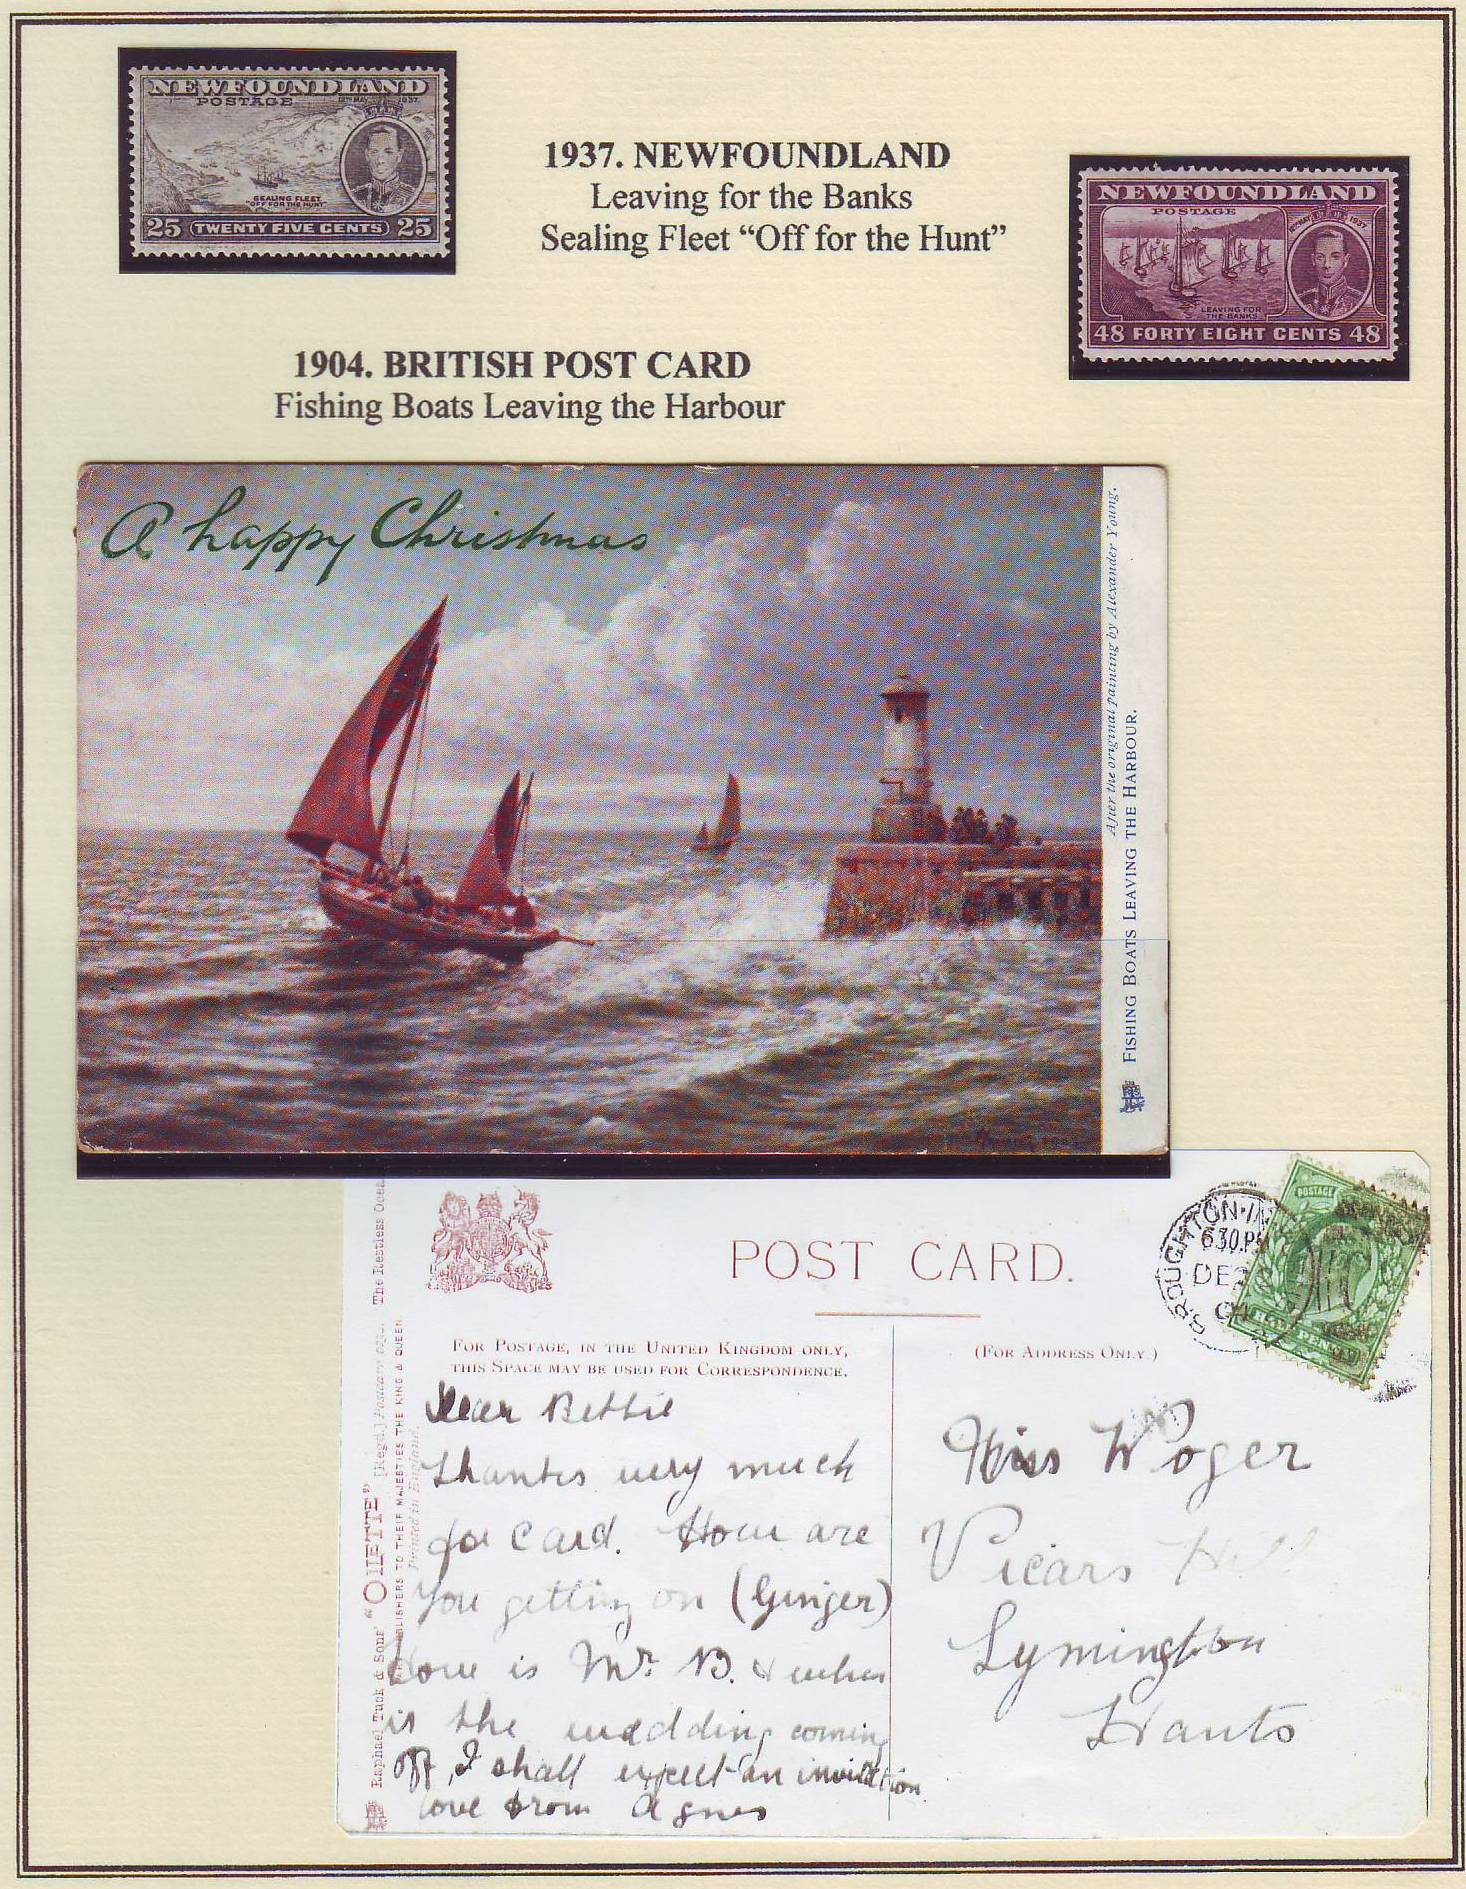 NEWFOUNDLAND
POSTAGE 12TH MAY 1937.
SEALING FLEET
"OFF FOR THE HUNT"
25 TWENTY FIVE CENTS 25
1937. NEWFOUNDLAND
Leaving for the Banks
Sealing Fleet “Off for the Hunt”
NEWFOUNDLAND
POSTAGE 12TH MAY 1937.
LEAVING FOR
THE BANKS
48 FORTY EIGHT CENTS 48
1904. BRITISH POST CARD
Fishing Boats Leaving the Harbour
A happy Christmas
After the original painting by Alexander Young.
FISHING BOATS LEAVING THE HARBOUR.
POST CARD.
FOR POSTAGE, IN THE UNITED KINGDOM ONLY,
THIS SPACE MAY BE USED FOR CORRESPONDENCE.
(FOR ADDRESS ONLY.)
BROUGHTON
6 30.PM
DE
04
POSTAGE
Raphael Tuck & Sons' "OILETTE" [Regd.] Postcard 'The Restless Ocea
PUBLISHERS TO THEIR MAJESTIES THE KING & QUEEN
Printed in England.
Dear Bettie
thanks very much
for card. How are
you getting on (Ginger)
how is Mr. B. & when
is the wedding coming
off, I shall expect an invitation
love from Agnes
Miss W Poger
Vicars Hill
Lymington
Hants